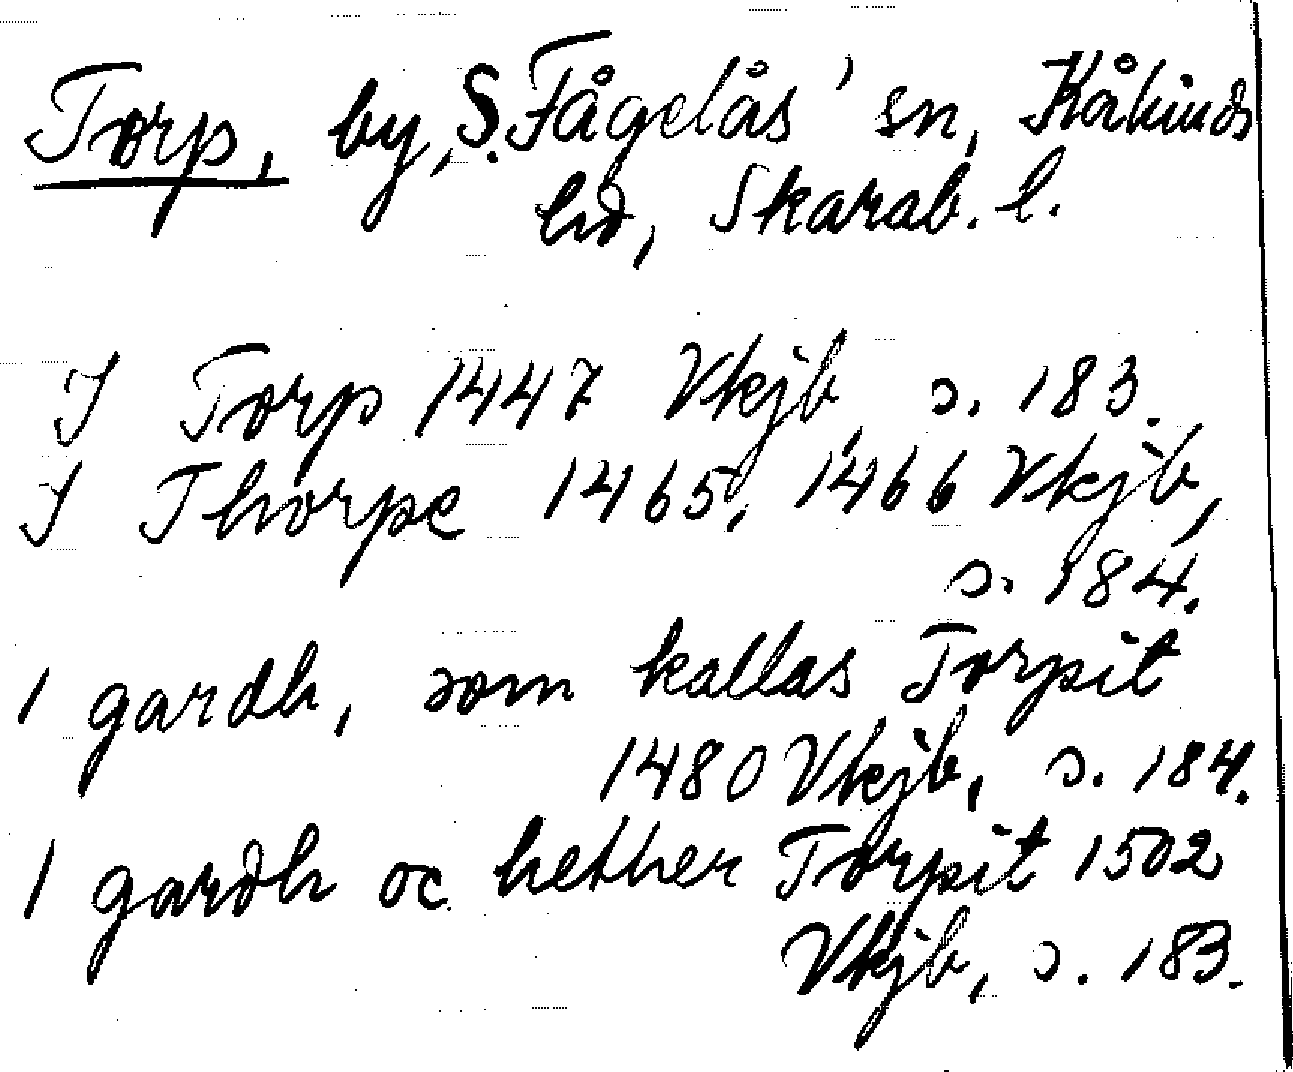 Torp, by, S. Fågelås' sn, Kåkinds
hd, Skarab. l.
I Torp 1447 Vkjb, s. 183.
I Thorpe 1465, 1466 Vkjb,
s. 184.
1 gardh, som kallas Torpit
1480 Vkjb, s. 184.
1 gardh oc hether Torpit 1502
Vkjb, s. 183.